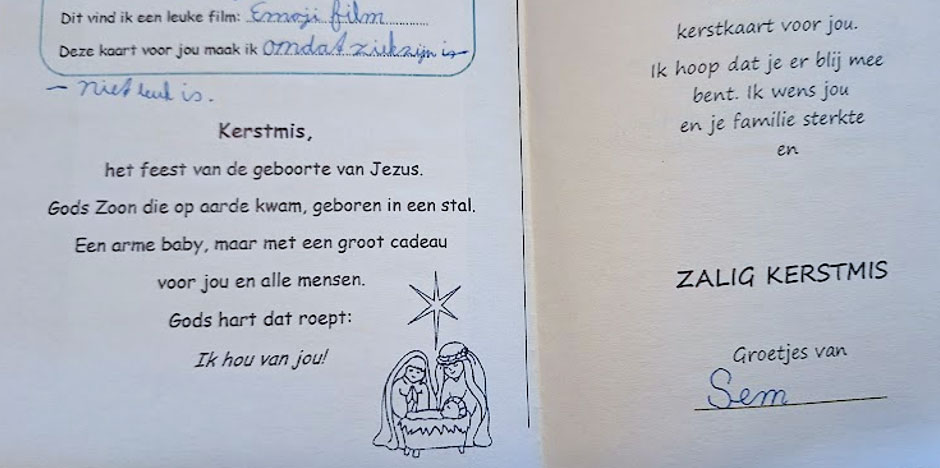 Dit vind ik een leuke film: Emoji film
Deze kaart voor jou maak ik omdat ziek zijn is
- niet leuk is.
Kerstmis,
het feest van de geboorte van Jezus.
Gods Zoon die op aarde kwam, geboren in een stal.
Een arme baby, maar met een groot cadeau
voor jou en alle mensen.
Gods hart dat roept:
Ik hou van jou!
kerstkaart voor jou.
Ik hoop dat je er blij mee
bent. Ik wens jou
en je familie sterkte
en
ZALIG KERSTMIS
Groetjes van
Sem